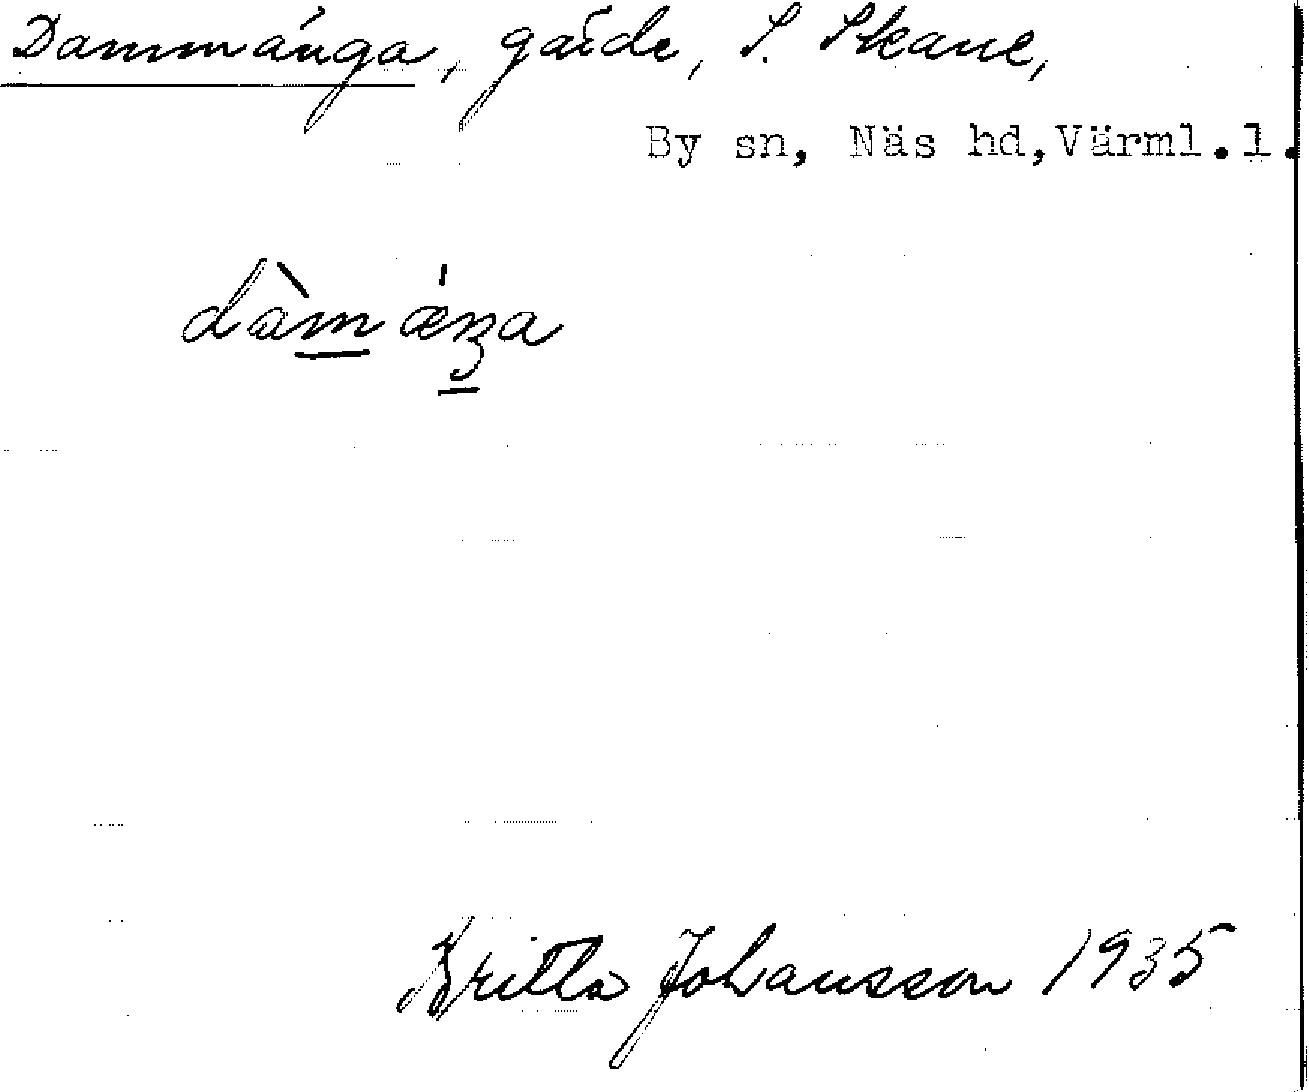 Dammänga, gärde, S. Skane,
By sn, Näs hd, Värml.l.
Britta Johansson 1935